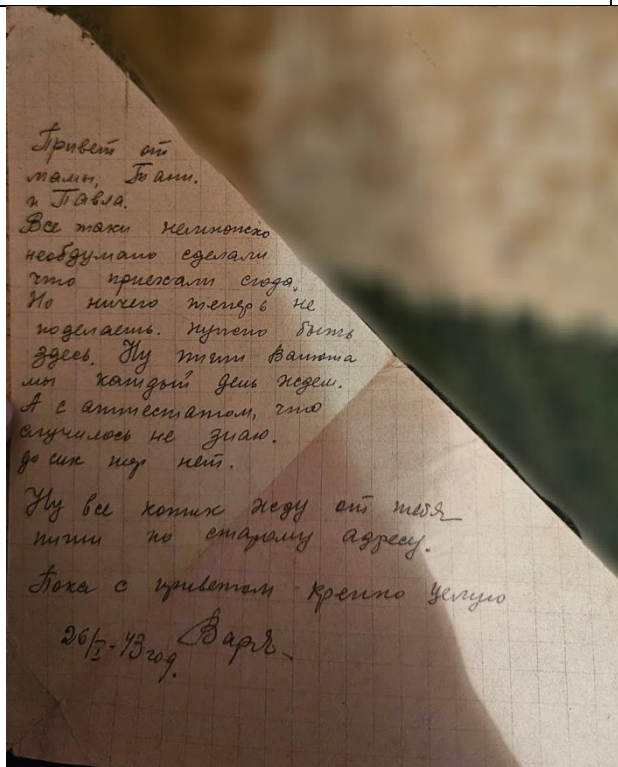 Привет от
мамы, Тани.
и Павла.
Все таки немножко
необдумано сделали
что приехали сюда.
Но ничего теперь не
поделаешь. нужно быть
здесь. Ну пиши Валюша
мы каждый день ждем.
А с аттестатом, что
случилось не знаю.
до сик пор нет.
Ну все котик жду от тебя
пиши по старому адресу.
Пока с приветом крепко целую
26/I-43 год. Варя